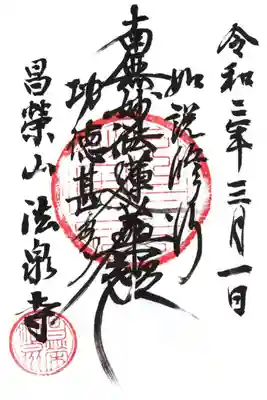 令和三年三月一日
如説修行
南無妙法蓮華経
功徳甚多
昌栄山 法泉寺